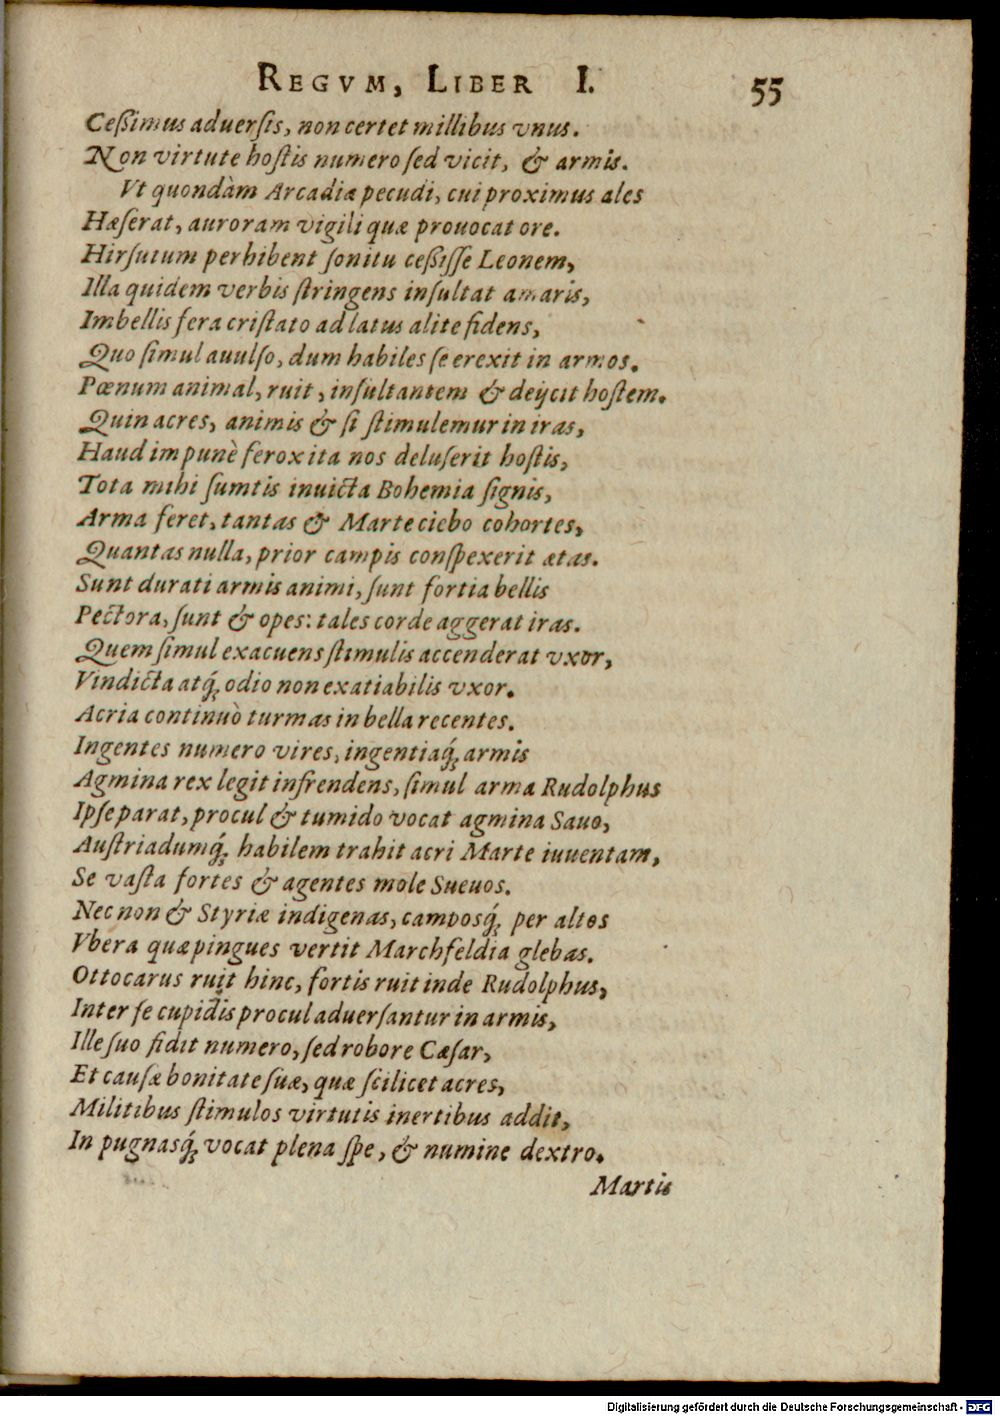 REGVM, LIBER I. 55
Ceßimus aduerſis, non certet millibus vnus.
Non virtute hoſtis numero ſed vicit, & armis.
Vt quondàm Arcadiæ pecudi, cui proximus ales
Hæſerat, auroram vigili quæ prouocat ore.
Hirſutum perhibent ſonitu ceßiſſe Leonem,
Illa quidem verbis ſtringens inſultat amaris,
Imbellis fera criſtato ad latus alite fidens,
Quo ſimul auulſo, dum habiles ſe erexit in armos.
Pœnum animal, ruit, inſultantem & deijcit hoſtem.
Quin acres, animis & ſi ſtimulemur in iras,
Haud impunè ferox ita nos deluſerit hoſtis,
Tota mihi ſumtis inuicta Bohemia ſignis,
Arma feret, tantas & Marte ciebo cohortes,
Quantas nulla, prior campis conſpexerit ætas.
Sunt durati armis animi, ſunt fortia bellis
Pectora, ſunt & opes: tales corde aggerat iras.
Quem ſimul exacuens ſtimulis accenderat vxor,
Vindicta atq́; odio non exatiabilis vxor.
Acria continuò turmas in bella recentes.
Ingentes numero vires, ingentiaq́; armis
Agmina rex legit infrendens, ſimul arma Rudolphus
Ipſe parat, procul & tumido vocat agmina Sauo,
Auſtriadumq́; habilem trahit acri Marte iuuentam,
Se vaſta fortes & agentes mole Sueuos.
Nec non & Styriæ indigenas, camposq́; per altos
Vbera quæ pingues vertit Marchfeldia glebas.
Ottocarus ruit hinc, fortis ruit inde Rudolphus,
Inter ſe cupidis procul aduerſantur in armis,
Ille ſuo fidit numero, ſed robore Cæſar,
Et cauſæ bonitate ſuæ, quæ ſcilicet acres,
Militibus ſtimulos virtutis inertibus addit,
In pugnasq́; vocat plena ſpe, & numine dextro.
Martis
Digitalisierung gefördert durch die Deutsche Forschungsgemeinschaft - DFG